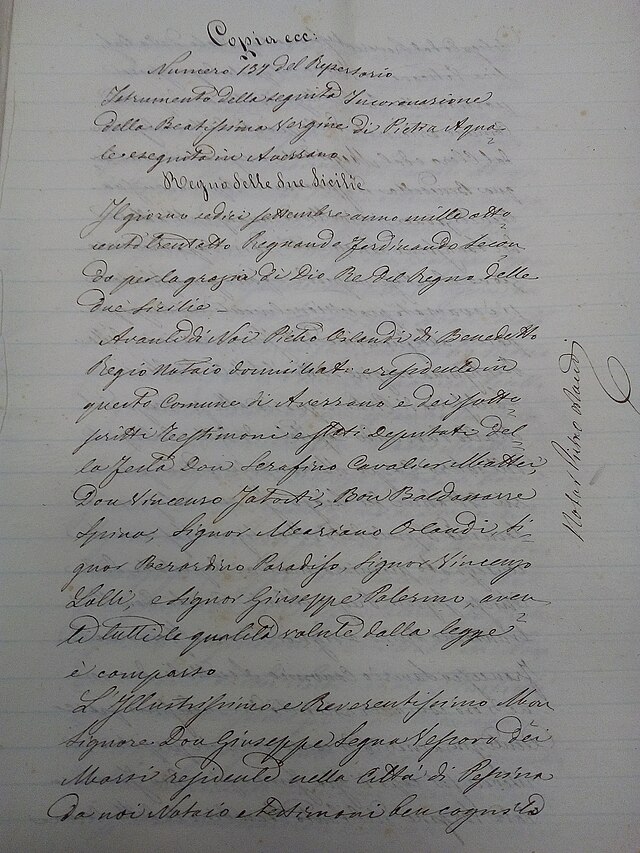 Copia ecc:
Numero 137 del Repertorio
Istrumento della seguita Incoronazione
della Beatissima Vergine di Pietra Aqua-
le eseguita in Avezzano
Regno delle due Sicilie
Il giorno sedici Settembre anno mille otto
cento trentotto Regnando Ferdinando Secon
do per la grazia di Dio Re del Regno delle
due Sicilie
Avanti di Noi Pietro Orlandi di Benedetto
Regio Notaio domiciliato e residente in
questo Comune di Avezzano e dei sotto
scritti Testimoni e stati Deputati del
la festa Don Serafino Cavalier Mattei,
Don Vincenzo Jatosti, Don Baldassarre
Spina, Signor Mariano Orlandi, Si
gnor Berardino Paradiso, Signor Vincenzo
Lolli, e Signor Giuseppe Palermo, aven
ti tutti le qualità volute dalla legge
è comparso
L'Illustrissimo e Reverentissimo Mon
signore Don Giuseppe Segna Vescovo dei
Marsi residente nella Città di Pescina
da noi Notaio e testimoni ben cognito
Notar Pietro Orlandi